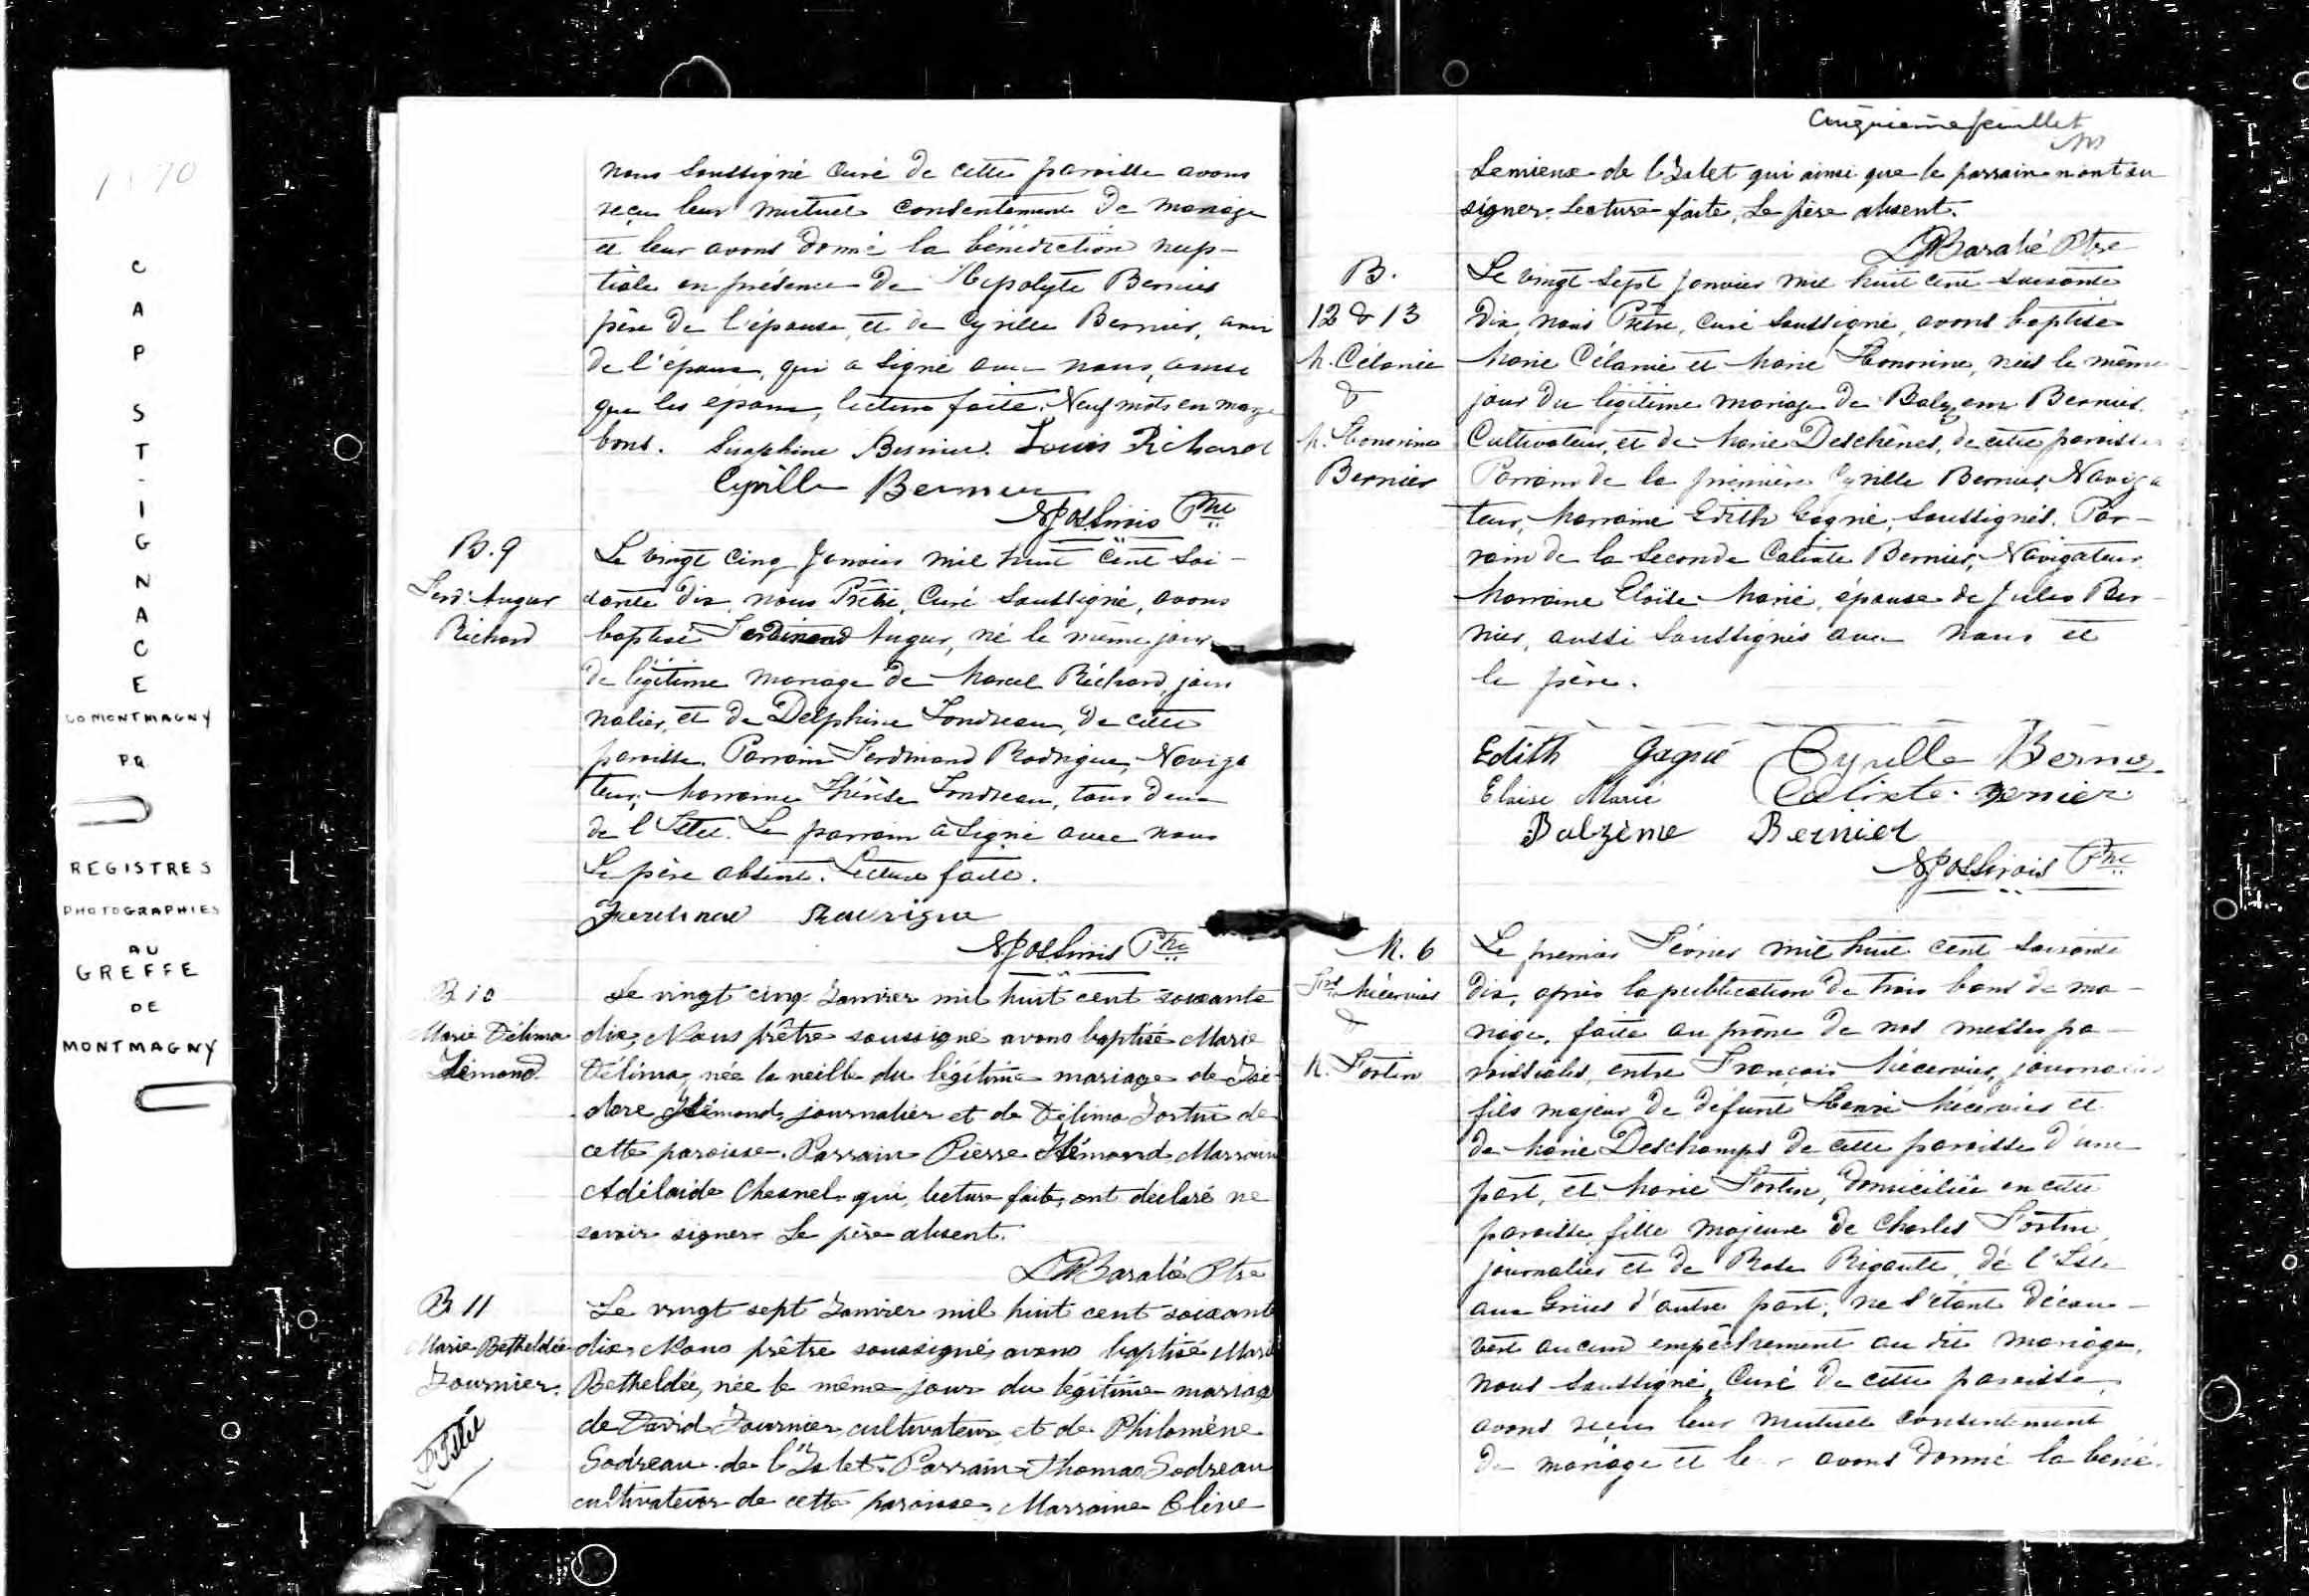 1870
CAP ST-IGNACE
CO MONTMAGNY
PQ
REGISTRES
PHOTOGRAPHIES
AU
GREFFE
DE
MONTMAGNY
nous soussigné curé de cette paroisse avons
reçu leur mutuel consentement de mariage
et leur avons donné la bénédiction nup-
tiale en présence de Hypolyte Bernier
père de l'épouse, et de Cyrille Bernier, ami
de l'époux, qui a signé avec nous, ainsi
que les époux, lecture faite. Neuf mots en marge
bons. Séraphine Bernier. Louis Richard
Cyrille Bernier
Ptre
B. 9
Ferd: Augur
Richard
Le vingt cinq Janvier mil huit cent soi-
xante dix, nous Prêtre, Curé soussigné, avons
baptisé Ferdinand Augur, né le même jour
de légitime mariage de Marcel Richard, jour
nalier, et de Delphine Sondreau, de cette
paroisse. Parrain Ferdinand Rodrigue, Naviga
teur, Marraine Thérèse Sondreau, tous deux
de l'Islet. Le parrain a signé avec nous
Le père absent. Lecture faite.
Ptre
B 10
Marie Délima
Hémond
Le vingt cinq Janvier mil huit cent soixante
dix, Nous prêtre soussigné avons baptisé Marie
Délima, née la veille du légitime mariage de Isi-
dore Hémond, journalier et de Délima Fortin de
cette paroisse. Parrain Pierre Hémond, Marraine
Adélaide Chesnel qui, lecture faite, ont déclaré ne
savoir signer. Le père absent.
Ptre
B 11
Marie Betheldée
Fournier.
Le vingt sept Janvier mil huit cent soixante
dix, Nous prêtre soussigné, avons baptisé Marie
Betheldée, née le même jour du légitime mariage
de David Fournier cultivateur et de Philomène
Sodreau de l'Islet. Parrain Thomas Sodreau
cultivateur de cette paroisse, Marraine
Cinquième feuillet
Lemieux de l'Islet qui ainsi que le parrain n'ont su
signer. Lecture faite, Le père absent.
Ptre
B.
12 & 13
M. Célanie
&
M. Honorine
Bernier
Le vingt sept Janvier mil huit cent soixante
dix, nous Prêtre, curé soussigné, avons baptisé
Marie Célanie et Marie Honorine, nées le même
jour du légitime mariage de Balzem Bernier
Cultivateur, et de Marie Deschênes, de cette paroisse
Parrain de la première Cyrille Bernier, Naviga
teur, Marraine Edith Gagné, soussignés. Par-
rain de la seconde Calixte Bernier, Navigateur
Marraine Eloïse Marié, épouse de Jules Ber-
nier, aussi soussignés avec nous et
le père.
Edith Gagné Cyrille Bernier
Eloise Marié Calixte Bernier
Balzème Bernier
Ptre
M. 6
&
M. Fortin
Le premier Février mil huit cent soixante
dix, après la publication de trois bans de ma-
riage, faite au prône de nos messes pa-
roissiales, entre François Mécervier, journalier
fils majeur de défunt Henri Mécervier et
de Marie Deschamps de cette paroisse d'une
part, et Marie Fortin, domiciliée en cette
paroisse, fille majeure de Charles Fortin,
journalier et de Rose Rigaulte, de l'Isle
aux Grües d'autre part, ne s'étant décou-
vert aucun empêchement au dit mariage,
nous soussigné, Curé de cette paroisse,
avons reçu leur mutuel consentement
de mariage et leur avons donné la béné-